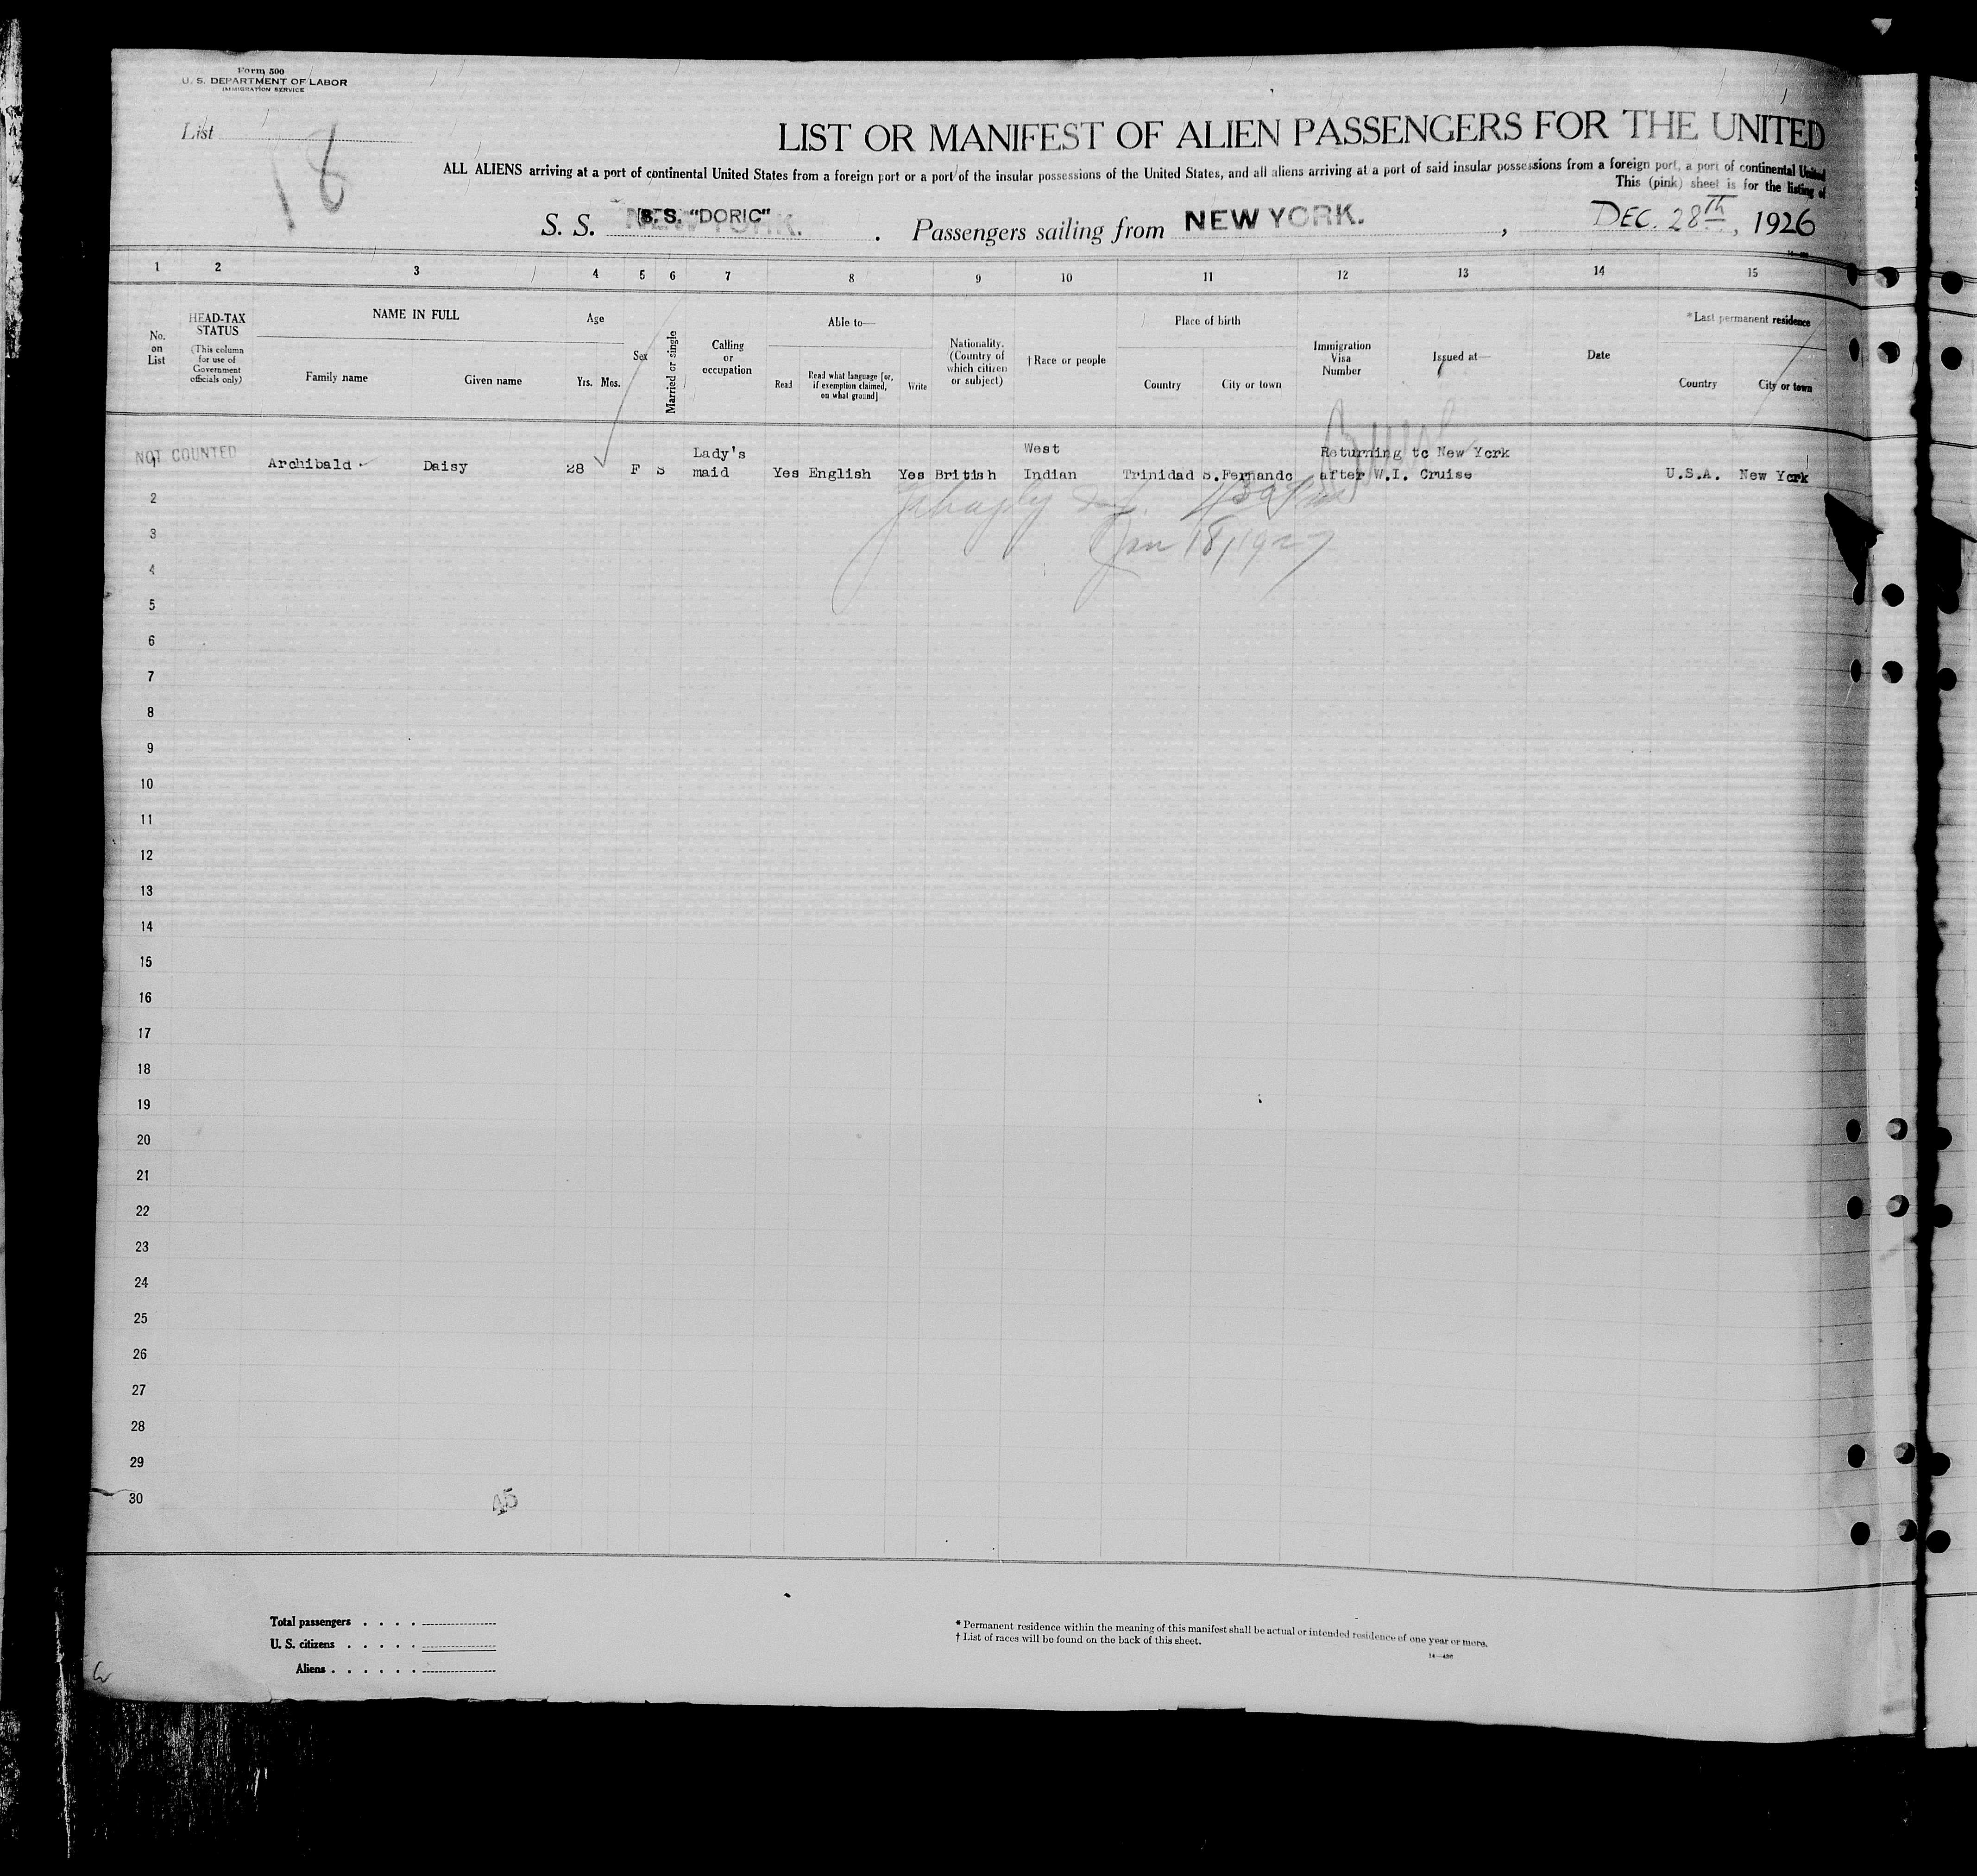 Form 500
U. S. DEPARTMENT OF LABOR
IMMIGRATION SERVICE
List
18
LIST OR MANIFEST OF ALIEN PASSENGERS FOR THE UNITED
ALL ALIENS arriving at a port of continental United States from a foreign port or a port of the insular possessions of the United States, and all aliens arriving at a port of said insular possessions from a foreign port, a port of continental United
This (pink) sheet is for the listing of
S. S. S. S. "DORIC" . Passengers sailing from NEW YORK. , DEC. 28TH , 1926
1 2 3 4 5 6 7 8 9 10 11 12 13 14 15
No. on List
HEAD-TAX STATUS
(This column for use of Government officials only)
NAME IN FULL
Family name Given name
Age
Yrs. Mos.
Sex
Married or single
Calling or occupation
Able to—
Read
Read what language [or, if exemption claimed, on what ground]
Write
Nationality. (Country of which citizen or subject)
†Race or people
Place of birth
Country City or town
Immigration Visa Number
Issued at—
Date
*Last permanent residence
Country City or town
NOT COUNTED
1 Archibald Daisy 28 F S Lady's maid Yes English Yes British West Indian Trinidad S.Fernando Returning to New York after W.I. Cruise U.S.A. New York
2
Jan 18, 1927
3
4
5
6
7
8
9
10
11
12
13
14
15
16
17
18
19
20
21
22
23
24
25
26
27
28
29
30
45
Total passengers . . . .
U. S. citizens . . . . .
Aliens . . . . . .
* Permanent residence within the meaning of this manifest shall be actual or intended residence of one year or more.
† List of races will be found on the back of this sheet.